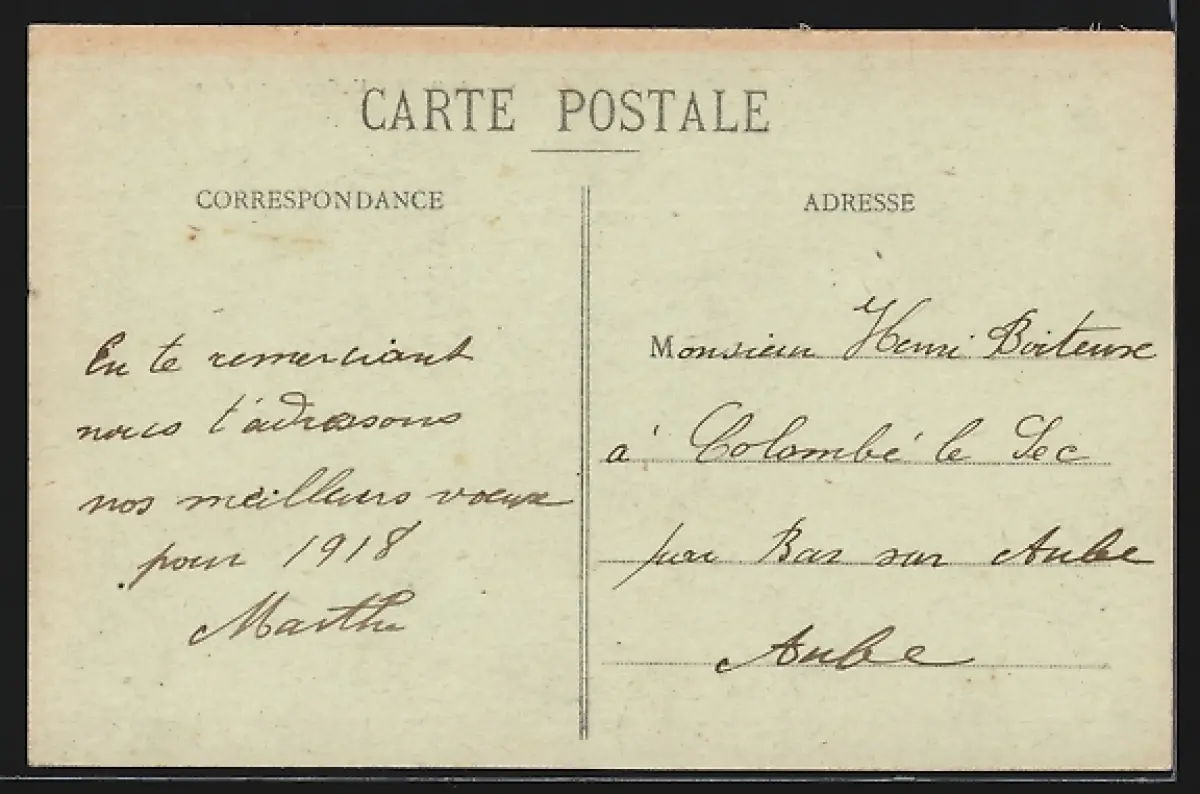 CARTE POSTALE
CORRESPONDANCE
En te remerciant
nous t'adressons
nos meilleurs voeux
pour 1918
Marthe
ADRESSE
Monsieur Henri Boiteux
à Colombé le Sec
par Bar sur Aube
Aube